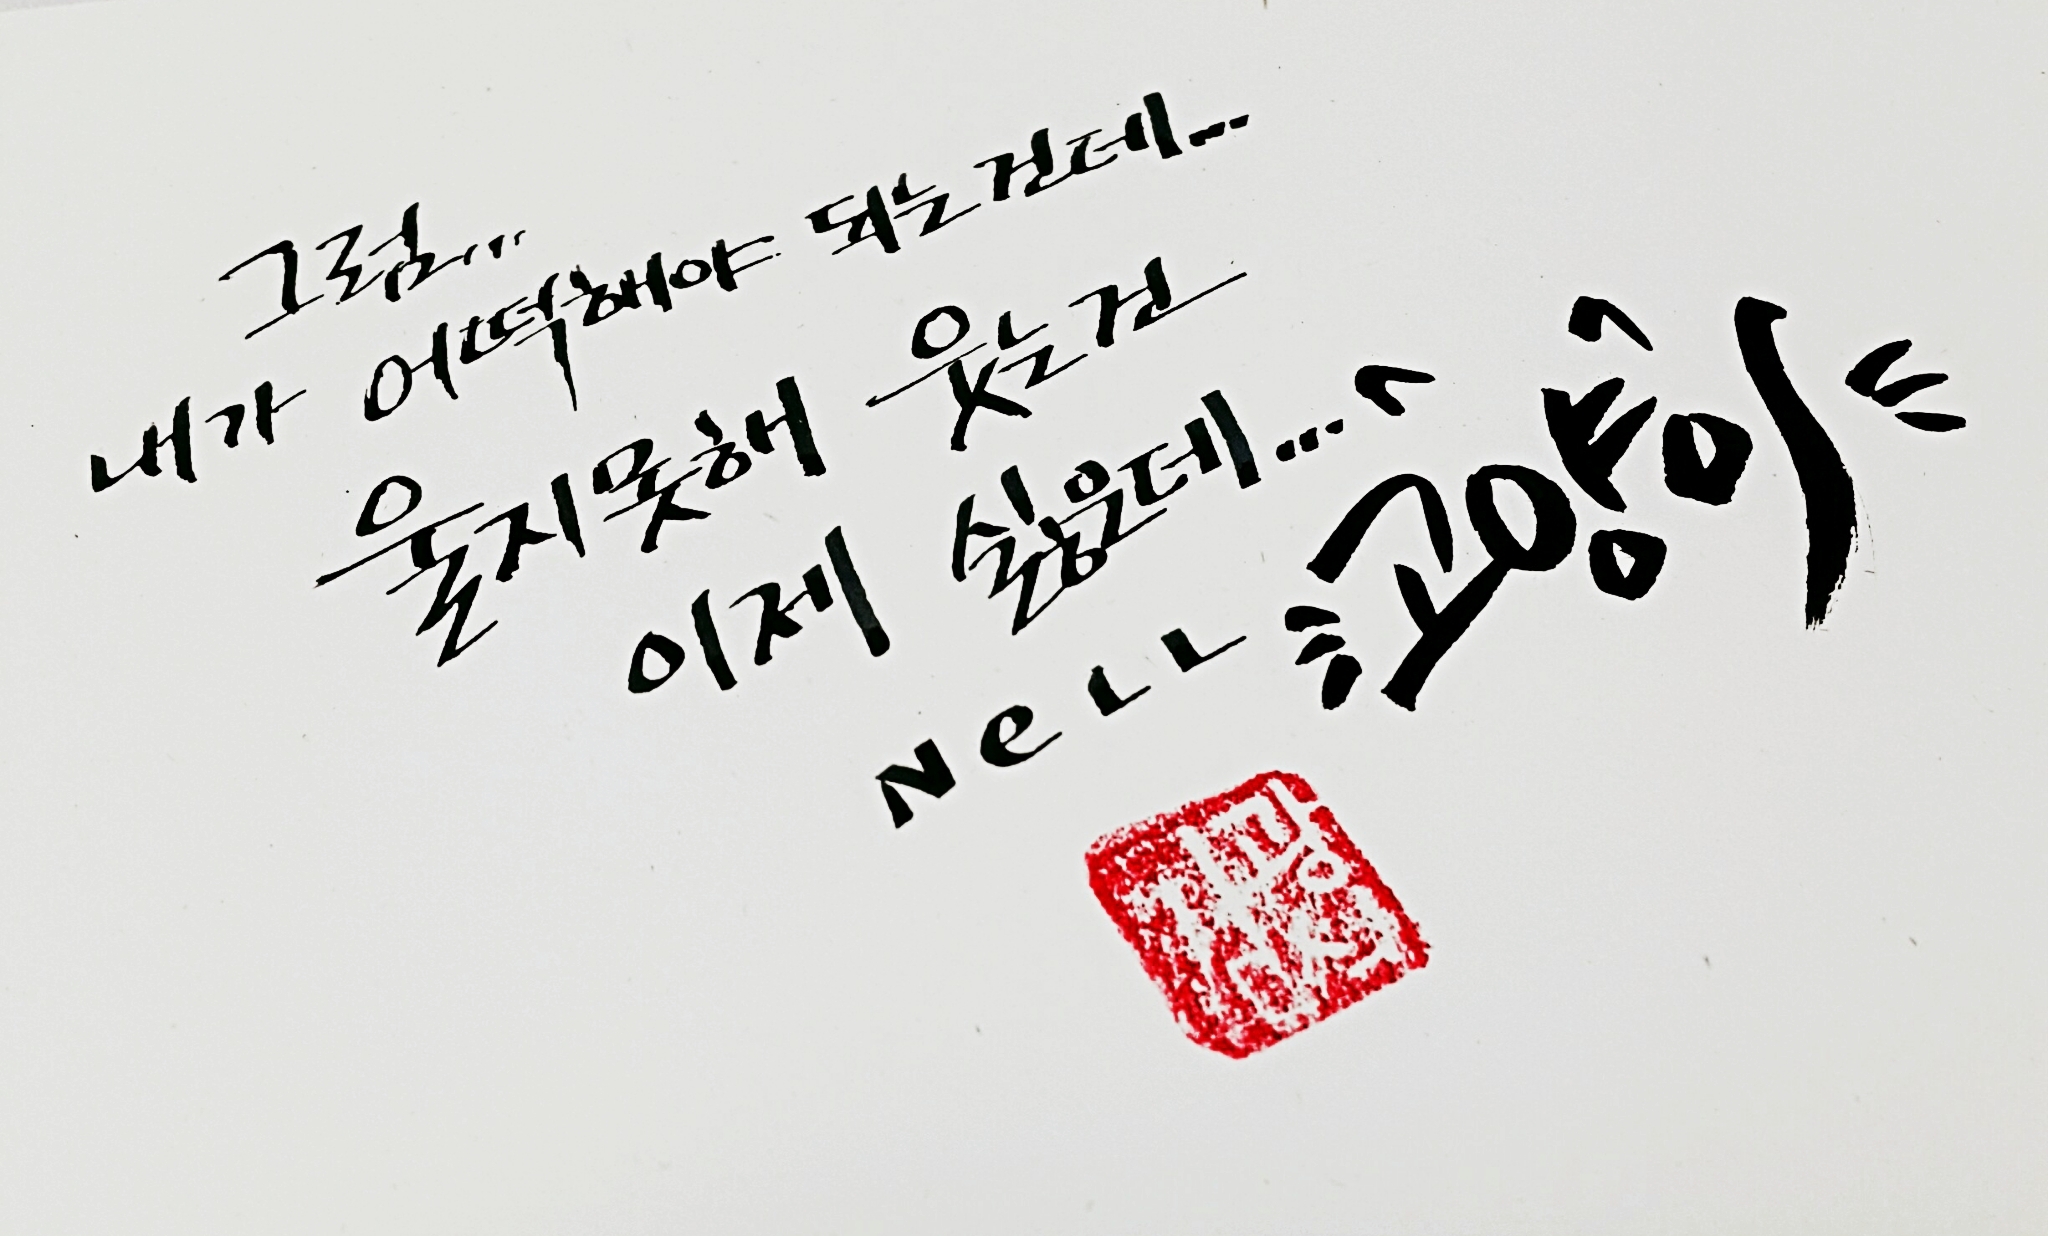 그럼...
내가 어떡해야 되는건데...
울지못해 웃는건
이제 싫은데...
Nell
고양이